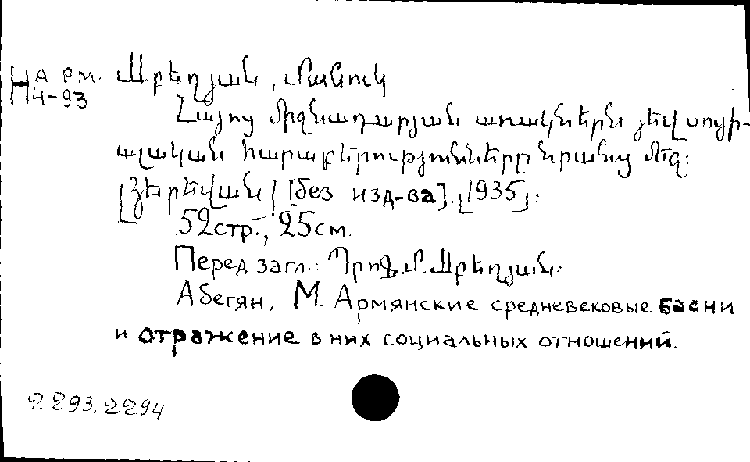 На рм. Աբեղյան, Մանուկ
Н4-93
Հայոց միջնադարյան առակներն յեվ սոցի-
ալական հարաբերությունները նրանց մեջ:
[Յերեվան] [без изд-ва], [1935].
52стр., 25см.
Перед загл.: Պրոֆ. Մ. Աբեղյան.
Абегян, М. Армянские средневековые басни
и отражение в них социальных отношений.
2293, 2294